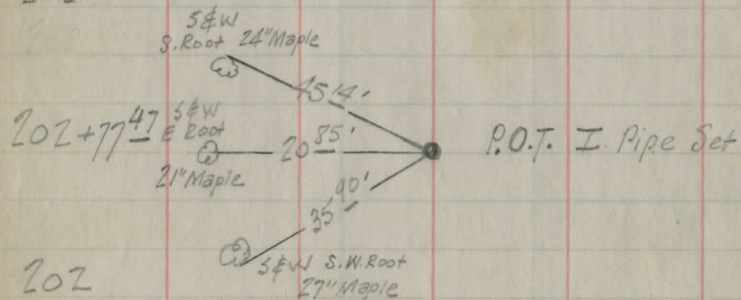 S&W
S.Root 24" Maple
45 14'
202+77 47
S&W
E Root
20 85'
P.O.T. I. Pipe Set
21" Maple
35 90'
S&W S.W.Root
27" Maple
202